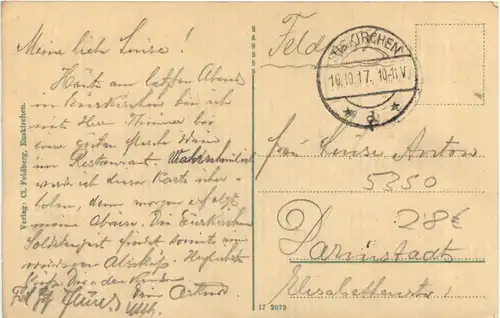 Meine liebe Luise!
Heute am letzten Abend
in Euskirchen bin ich
mit Herrn Thümer bei
einer guten Flasche Wein
im Restaurant. Wahrscheinlich
werde ich diese Karte über-
holen, denn morgen erfolgt
meine Abreise. Die Euskirchener
Soldatenzeit findet somit
Abschluß. Herzlichst
Kuß Dir u. den Kindern
Dein
Verlag: Cl. Feldberg, Euskirchen.
249353
Feldp
EUSKIRCHEN
16.10.17. 10-11V
Frau Luise Anton
5350
28€
Darmstadt
Elisabethenstr. 1
17 2079